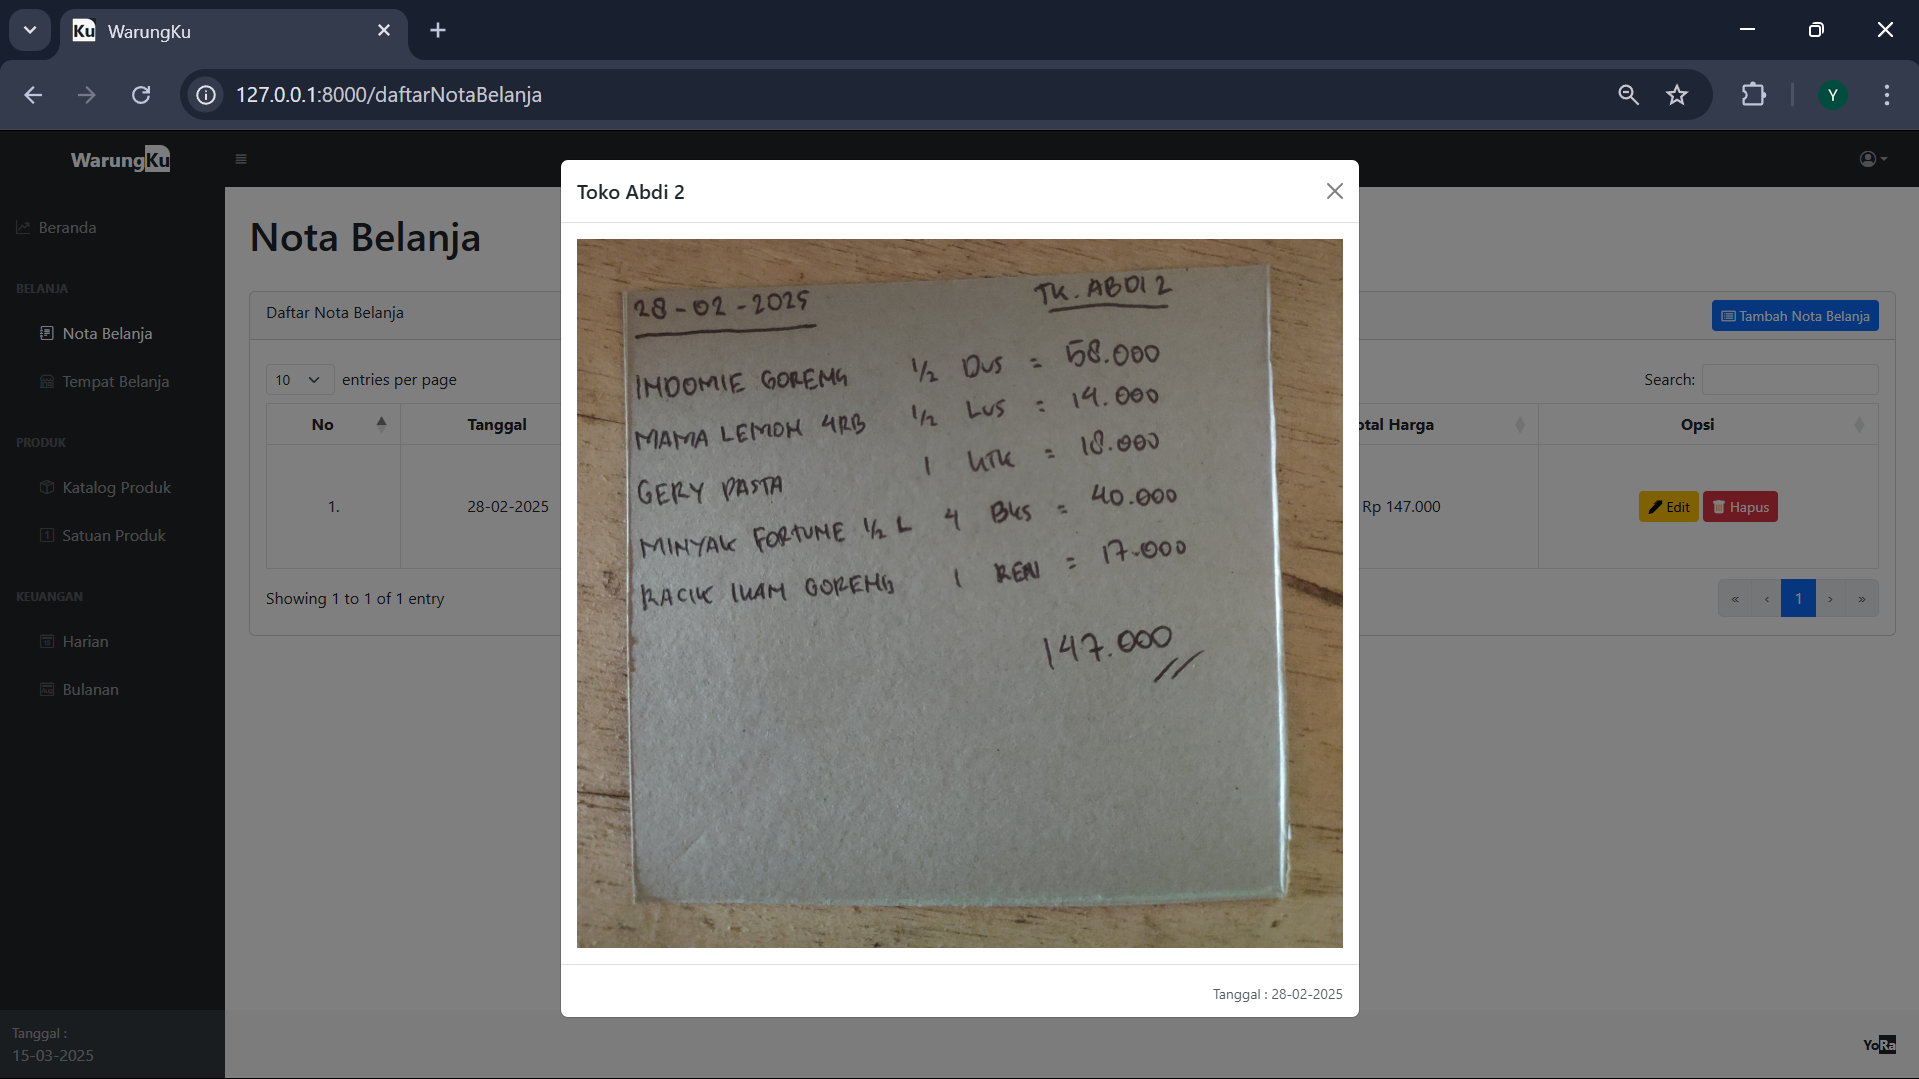 Ku WarungKu
127.0.0.1:8000/daftarNotaBelanja
Y
WarungKu
Beranda
BELANJA
Nota Belanja
Tempat Belanja
PRODUK
Katalog Produk
Satuan Produk
KEUANGAN
Harian
Bulanan
Tanggal :
15-03-2025
Nota Belanja
Daftar Nota Belanja
Tambah Nota Belanja
10 entries per page
Search:
No Tanggal otal Harga Opsi
1. 28-02-2025 Rp 147.000 Edit Hapus
Showing 1 to 1 of 1 entry
« ‹ 1 › »
Toko Abdi 2
28-02-2025 TK. ABDI 2
INDOMIE GORENG 1/2 DUS = 58.000
MAMA LEMON 4RB 1/2 LUS = 14.000
GERY PASTA 1 KTK = 18.000
MINYAK FORTUNE 1/2 L 4 BKS = 40.000
RACIK IKAN GORENG 1 REN = 17.000
147.000
Tanggal : 28-02-2025
YoRa